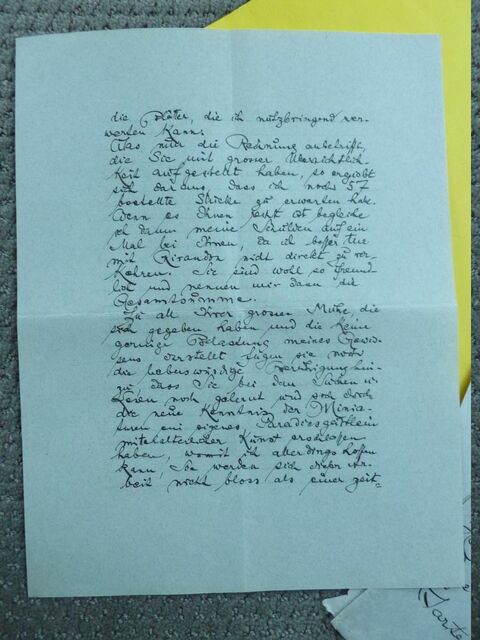 die Blätter, die ich nutzbringend ver-
werten kann.
Was nun die Rechnung anbetrifft,
die Sie mit grosser Übersichtlich-
keit aufgestellt haben, so ergibt
sich daraus, dass ich noch 57
bestellte Stücke zu erwarten habe.
Wenn es Ihnen recht ist begleiche
ich dann meine Schulden auf ein
Mal bei Ihnen, da ich
mit Giraudon nicht direkt zu ver-
kehren. Sie sind wohl so freund-
lich und nennen mir dann die
Gesamtsumme.
Zu all Ihrer grossen Mühe, die
Sie sich gegeben haben und die keine
geringe Belastung meines Gewis-
sens darstellt fügen sie noch
die liebenswürdige Beruhigung hin-
zu, dass Sie bei dem Suchen u.
Lesen noch gelernt und sich durch
die neue Kenntnis der Minia-
turen ein eigenes Paradiesgärtlein
mittelalterlicher Kunst erschlossen
haben, womit ich allerdings hoffen
kann, Sie werden sich dieser Ar-
beit nicht bloss als einer zeit-